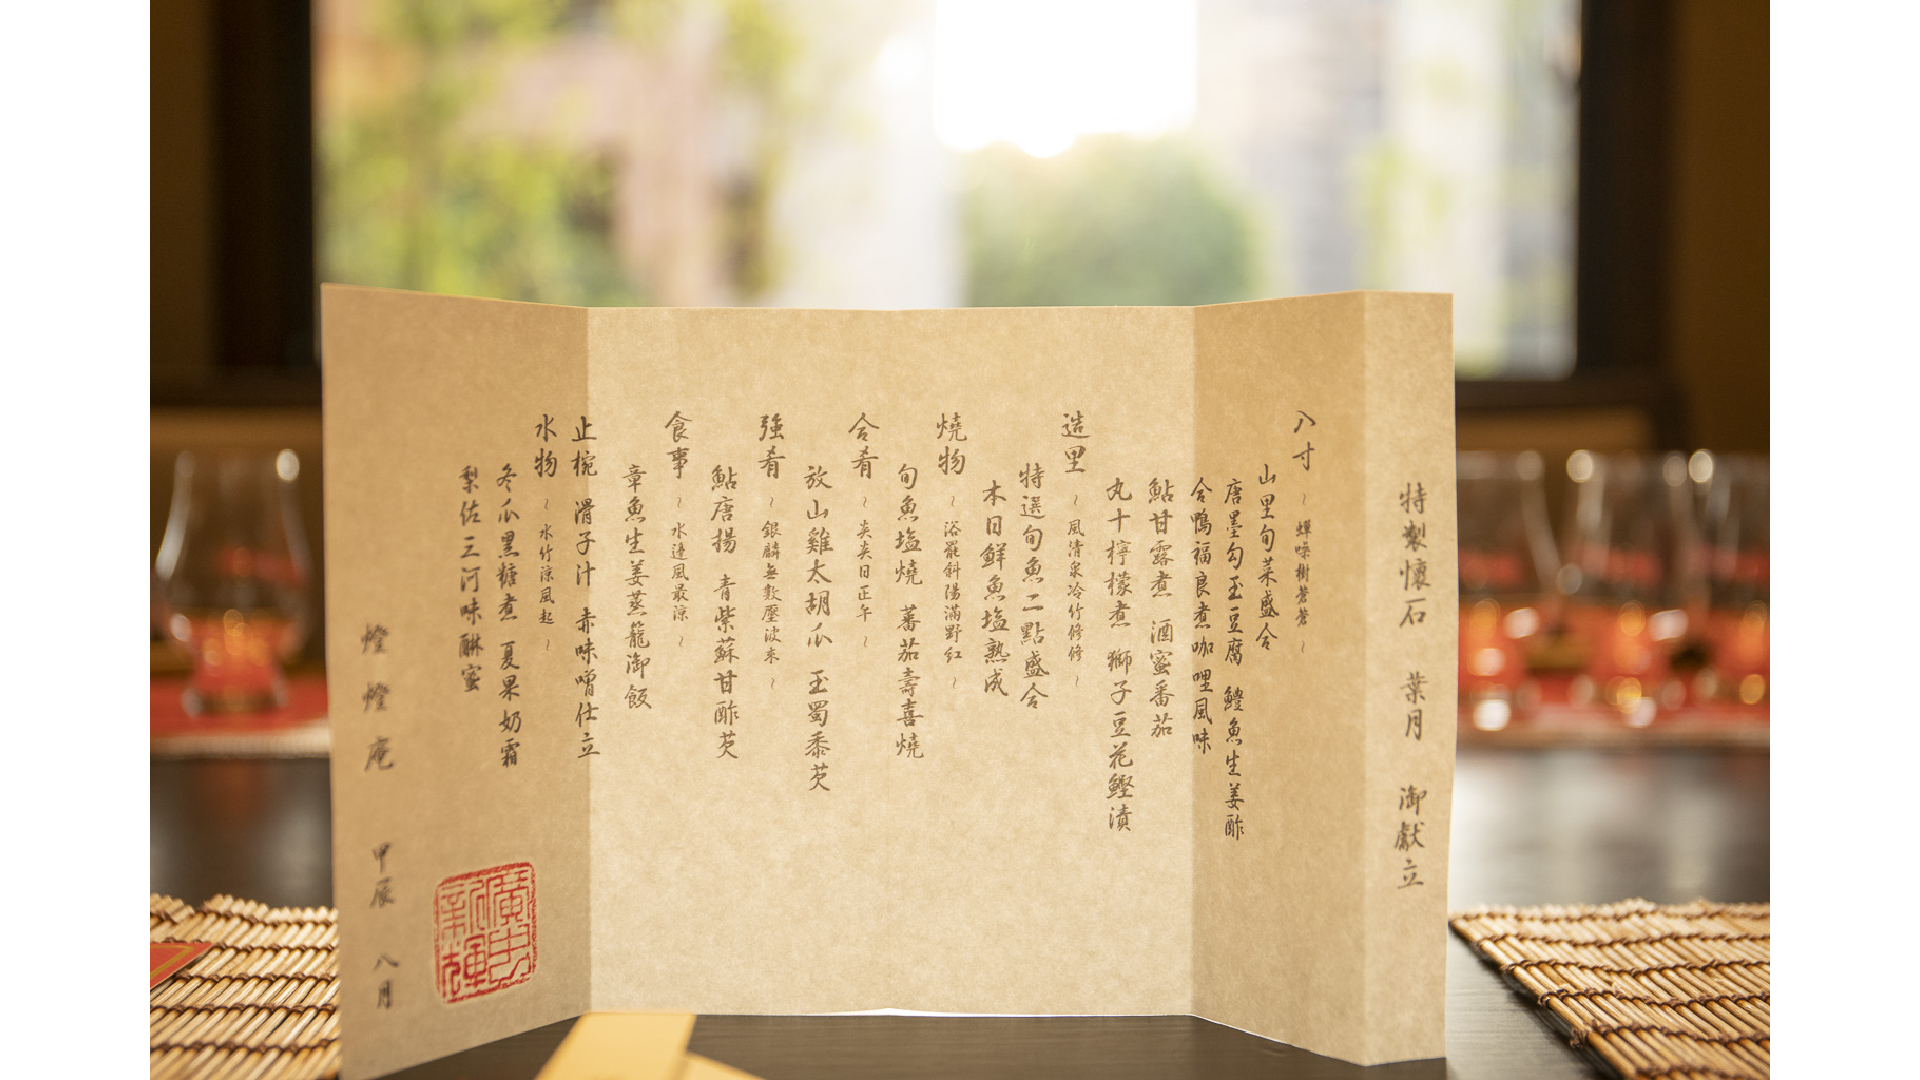 特製懷石 葉月 御獻立
八寸 ~ 蟬噪樹蒼蒼 ~
山里旬菜盛合
唐墨勾玉豆腐 鱧魚生姜酢
合鴨福良煮咖哩風味
鮎甘露煮 酒蜜番茄
丸十檸檬煮 獅子豆花鰹漬
造里 ~ 風清泉冷竹修修 ~
特選旬魚二點盛合
本日鮮魚塩熟成
燒物 ~ 浴罷斜陽滿野紅 ~
旬魚塩燒 蕃茄壽喜燒
合肴 ~ 炎炎日正午 ~
放山雞太胡瓜 玉蜀黍芡
強肴 ~ 銀麟無數壓波來 ~
鮎唐揚 青紫蘇甘酢芡
食事 ~ 水邊風最涼 ~
章魚生姜蒸籠御飯
止椀 滑子汁 赤味噌仕立
水物 ~ 水竹涼風起 ~
冬瓜黑糖煮 夏果奶霜
梨佐三河味醂蜜
燈燈庵 甲辰 八月